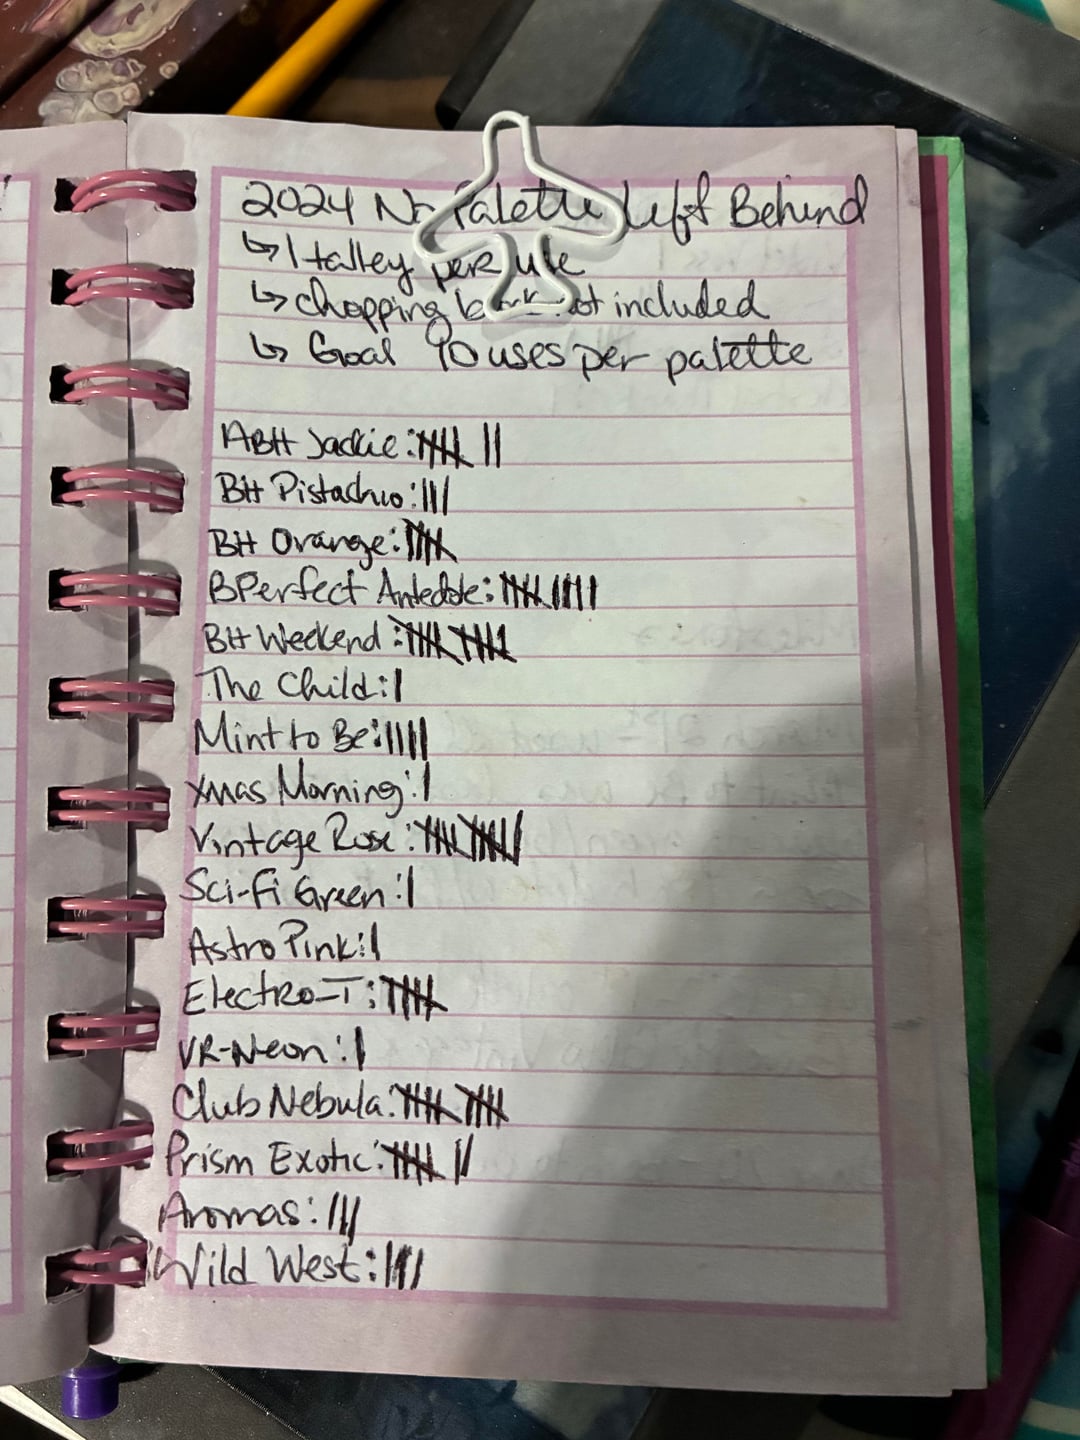 2024 No Palette Left Behind
↳ 1 talley per use
↳ chopping block not included
↳ Goal 10 uses per palette
ABH Jackie: |||| ||
BH Pistachio: |||
BH Orange: ||||
BPerfect Antedote: |||| ||||
BH Weekend: |||| ||||
The Child: |
Mint to Be: ||||
Xmas Morning: |
Vintage Rose: |||| |||| |
Sci-Fi Green: |
Astro Pink: |
Electro-T: ||||
VR-Neon: |
Club Nebula: |||| ||||
Prism Exotic: |||| ||
Aromas: |||
Wild West: ||||